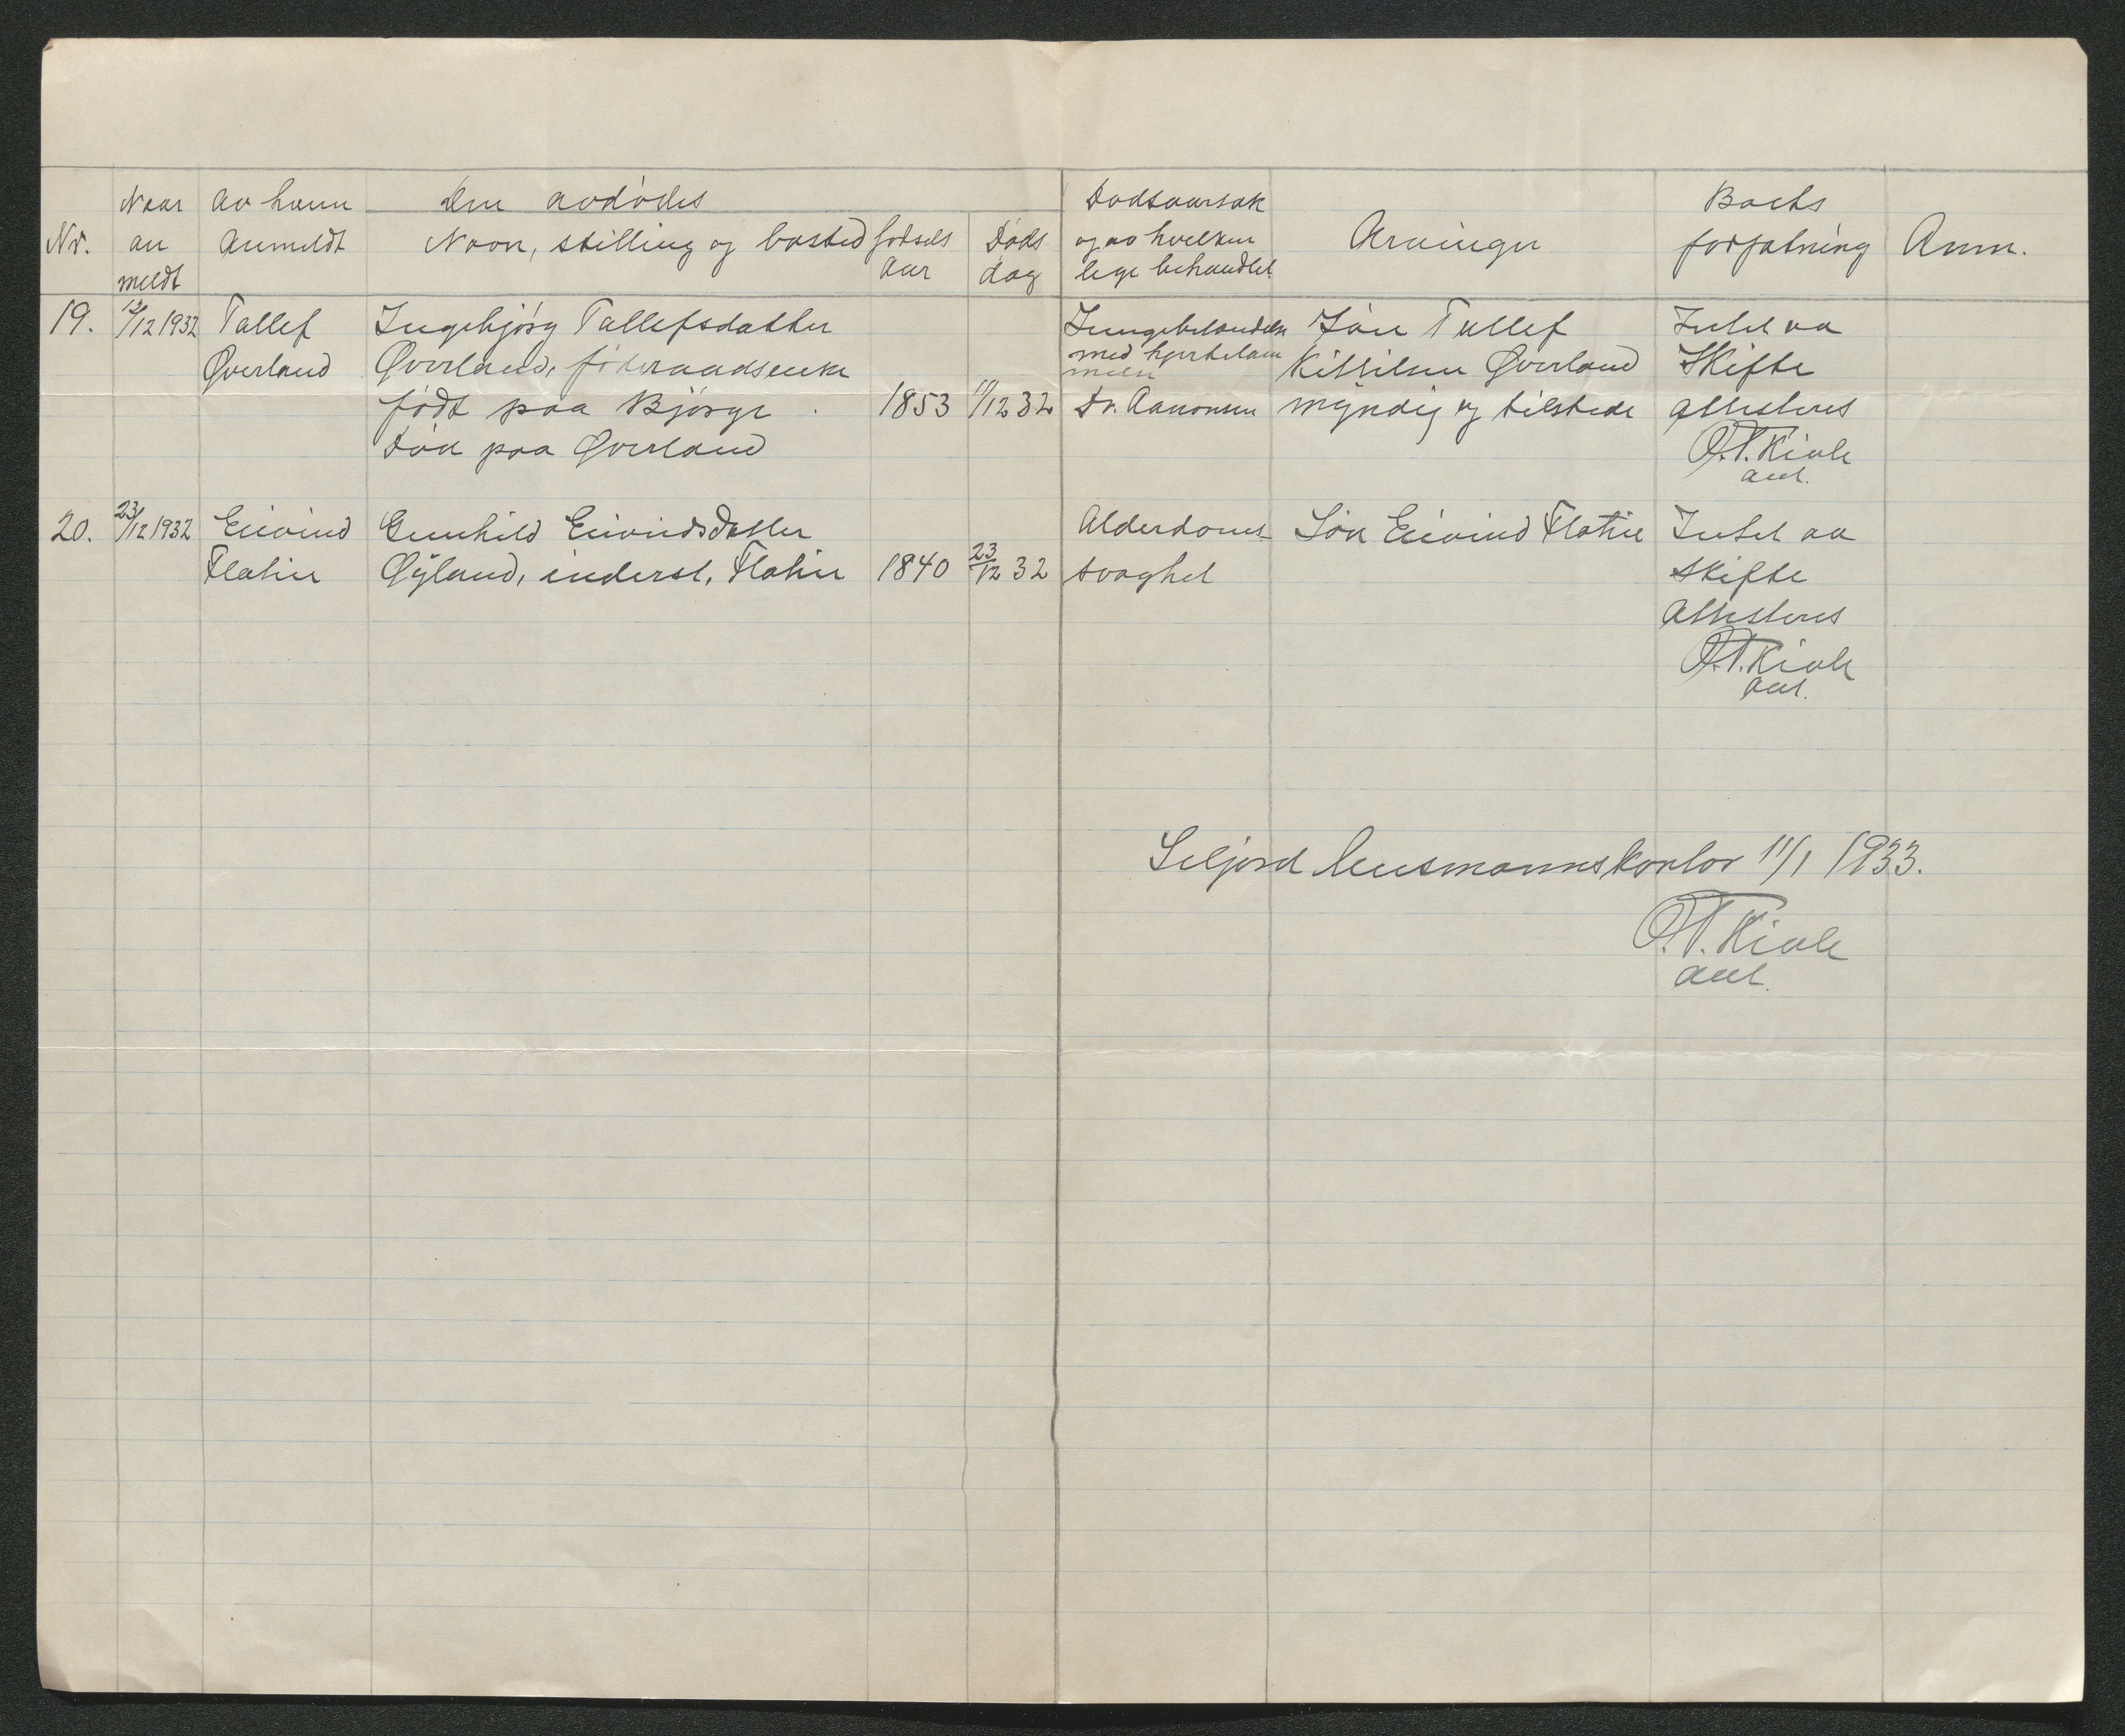 Nr.
Naar an meldt
Av hvem Anmeldt
Den avdødes
Navn, stilling og bosted
fødsels Aar
Døds dag
Dødsaarsak og av hvilken lege behandlet.
Arvinger
Boets forfatning
Anm.
19. 12/12 1932 Tallef Ingebjørg Tallefsdatter Lungebetændelse Søn Tallef Intet aa
Øverland Øverland, føderaadsenke med hjertelam Kittilsen Øverland Skifte
melse
født paa Bjørge. 1853 11/12 32 Dr. Aanonsen myndig og tilstede Attesteres
Død paa Øverland O.T. Kivle
aut.
20. 23/12 1932 Eivind Gunhild Eivindsdatter Alderdoms- Søn Eivind Flatin Intet aa
Flatin Øyland, inderst, Flatin 1840 23/12 32 svaghet Skifte
Attesteres
O.T. Kivle
aut.
Seljord lensmannskontor 11/1 1933.
O.T. Kivle
aut.